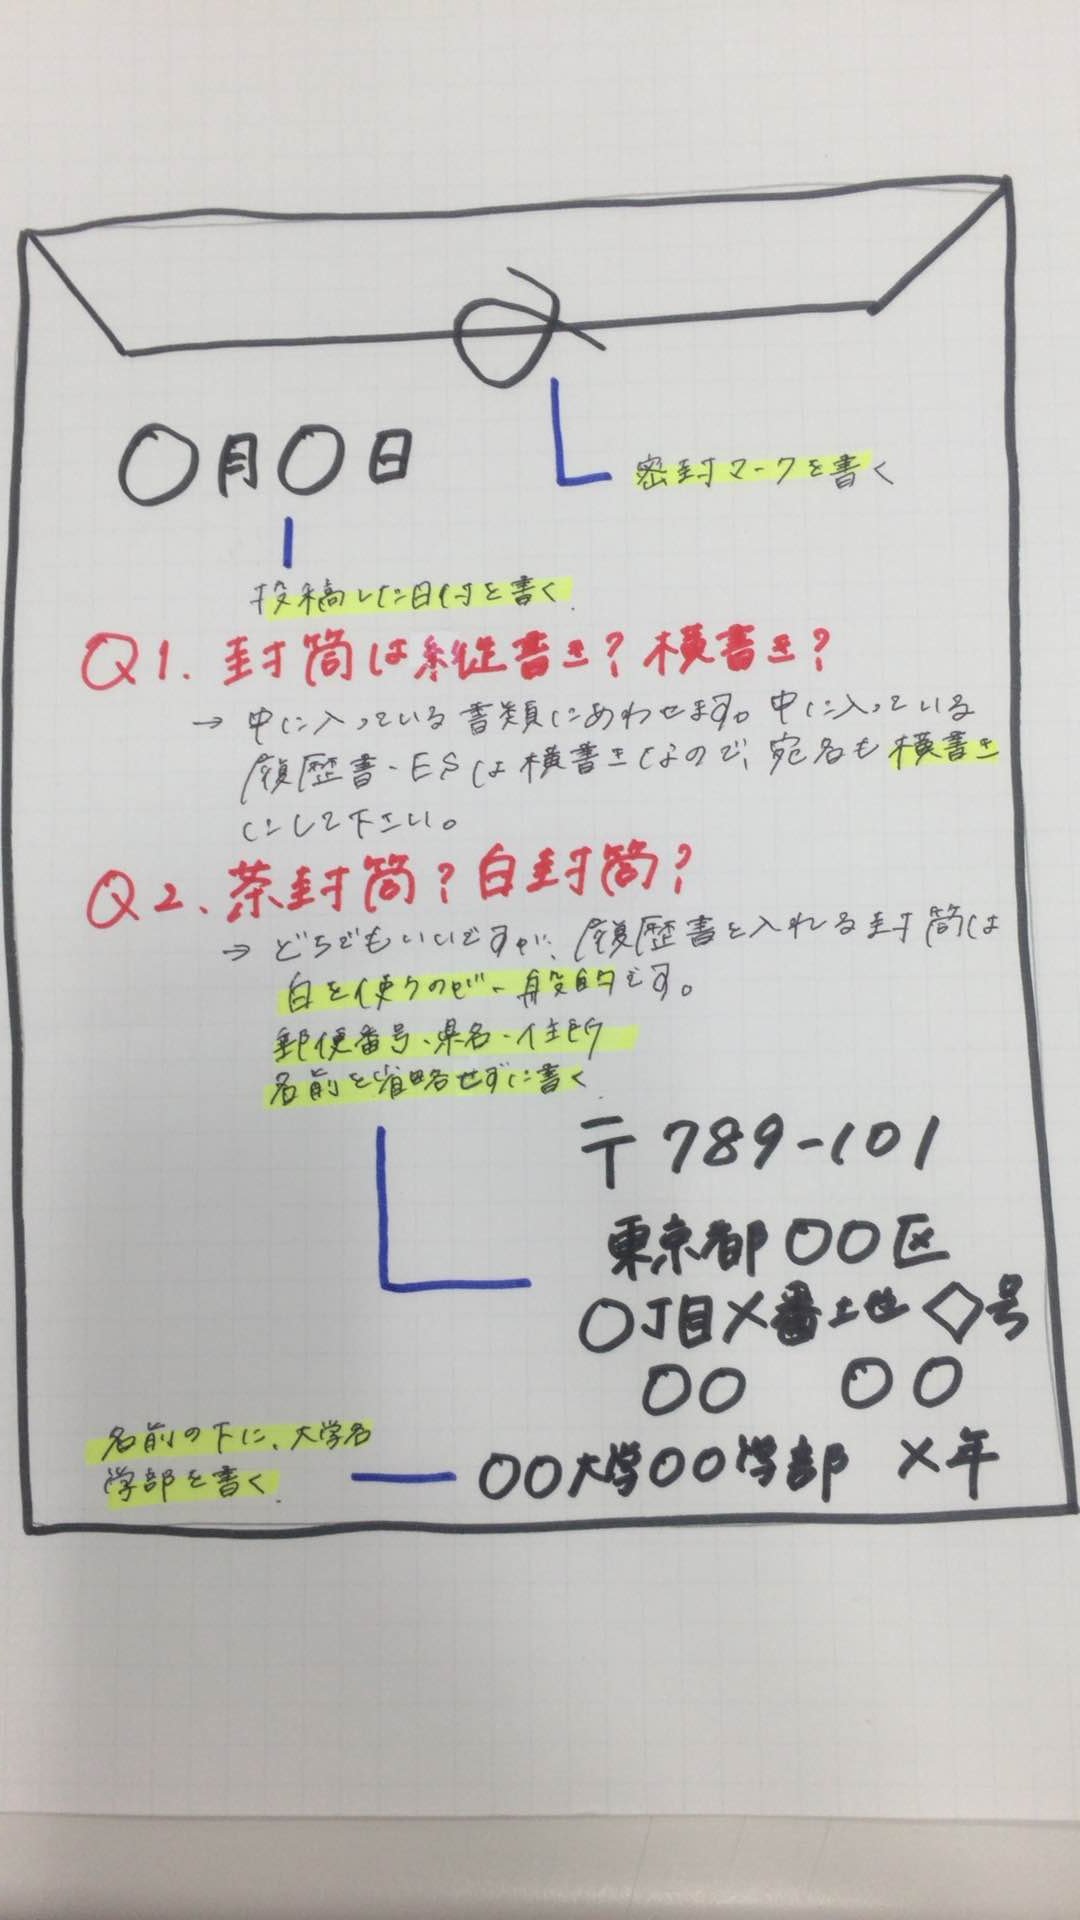 〇月〇日
密封マークを書く
投稿した日付を書く
Q1. 封筒は縦書き?横書き?
→ 中に入っている書類にあわせます。中に入っている
履歴書・ESは横書きなので、宛名も横書き
にして下さい。
Q2. 茶封筒?白封筒?
→ どちでもいいですが、履歴書を入れる封筒は
白を使うのが一般的です。
郵便番号、県名・住所
名前を省略せずに書く
〒789-101
東京都〇〇区
〇丁目×番土地◇号
〇〇 〇〇
名前の下に、大学名
学部を書く
〇〇大学〇〇学部 ×年